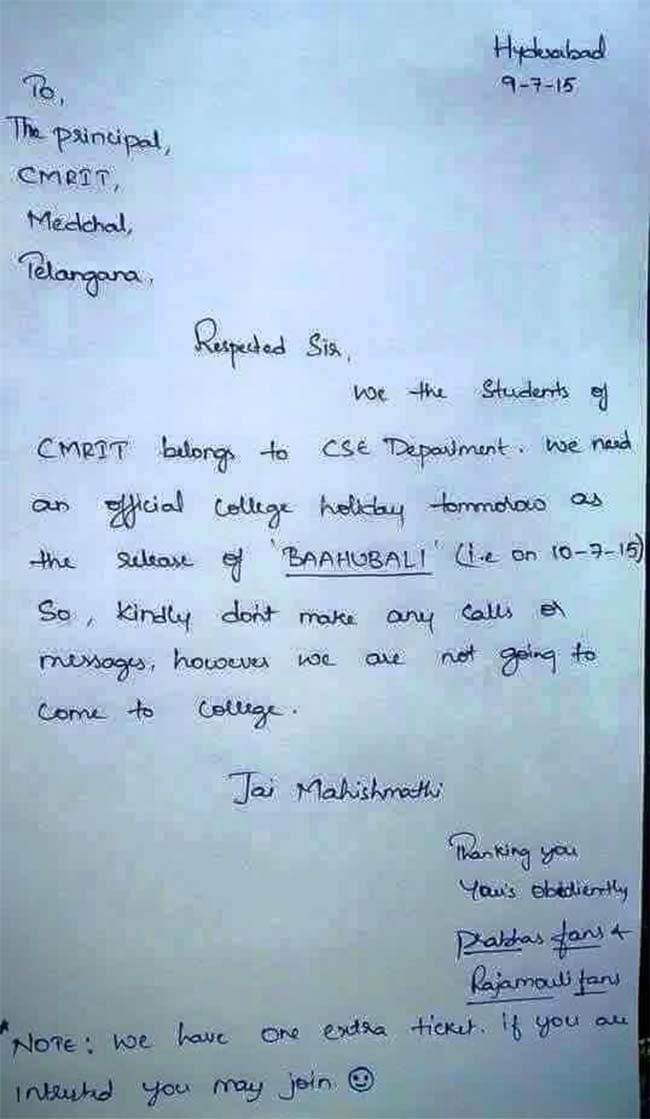 Hyderabad
9-7-15
To,
The principal,
CMRIT,
Medchal,
Telangana,
Respected Sir,
We the Students of
CMRIT belongs to CSE Department. We need
an official college holiday tommorow as
the release of 'BAAHUBALI' (i.e on 10-7-15)
So, kindly don't make any calls or
messages, however we are not going to
come to college.
Jai Mahishmathi
Thanking you
Your's obediently
Prabhas fans &
Rajamouli fans
*NOTE: We have one extra ticket. if you are
intrested you may join ☺